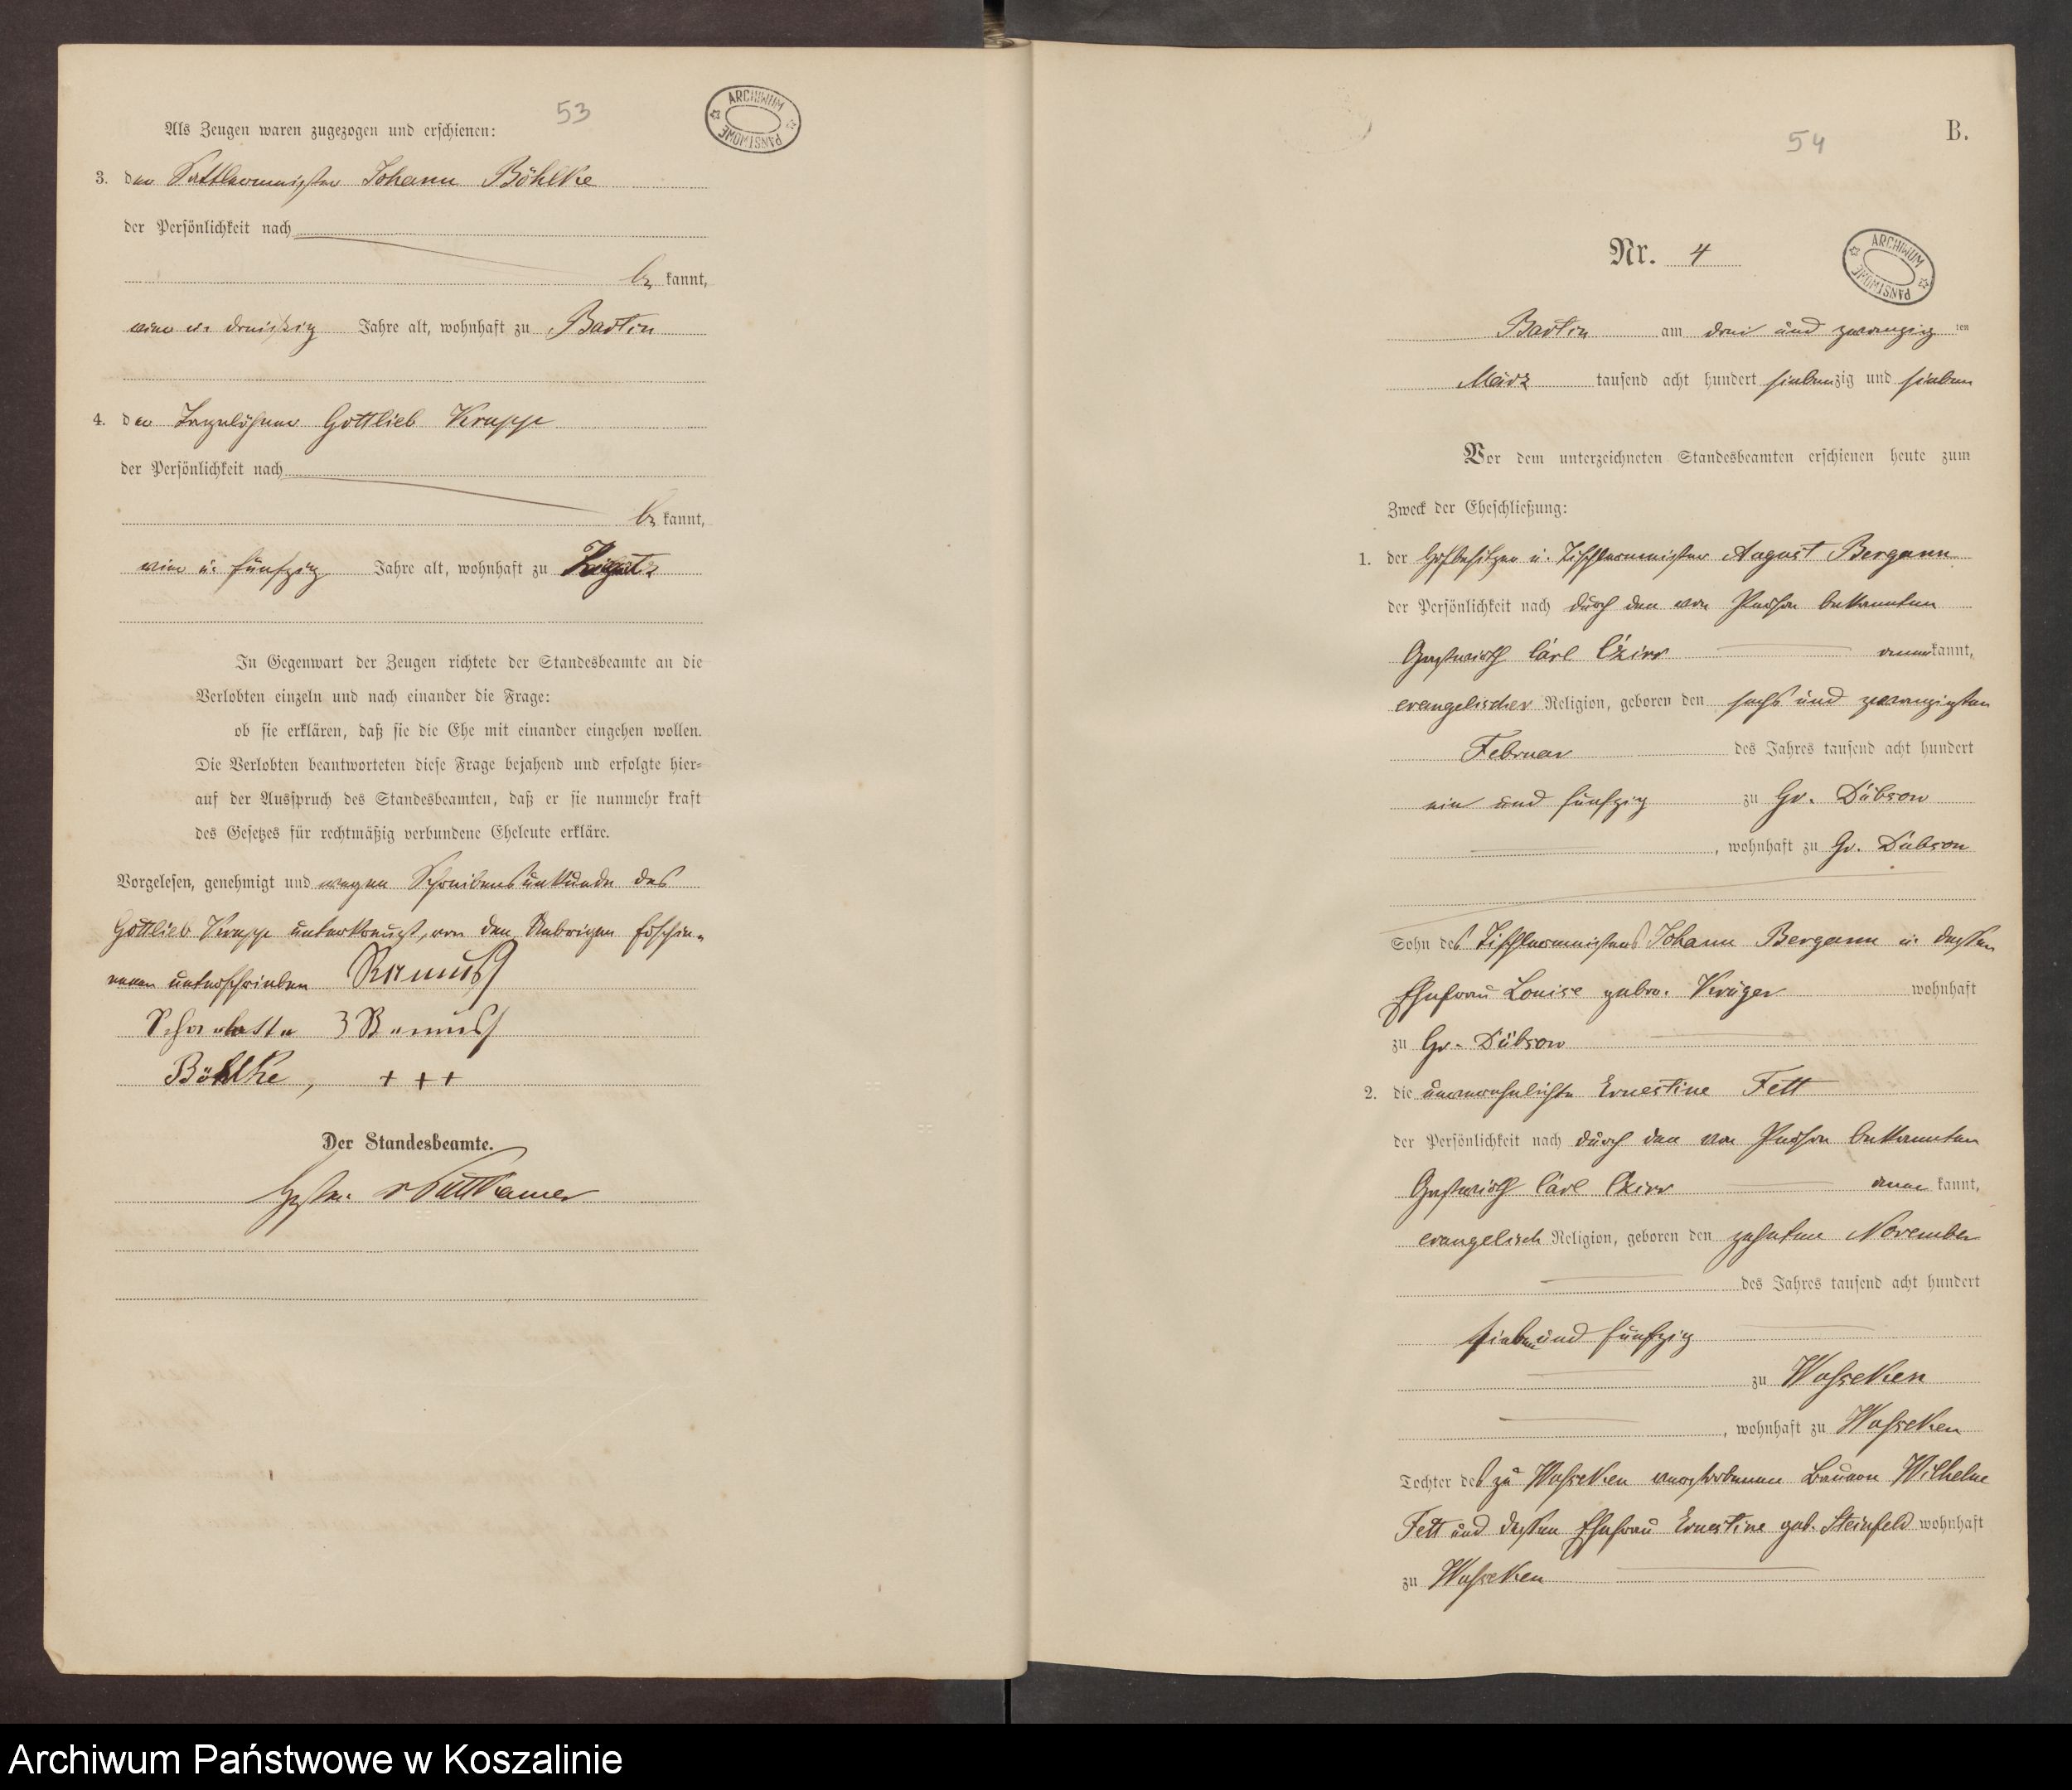 53
ARCHIWUM PAŃSTWOWE
Als Zeugen waren zugezogen und erschienen:
3. der Sattlermeister Johann Böhlke
der Persönlichkeit nach
bekannt,
vier u. dreißig Jahre alt, wohnhaft zu Bartin
4. der Tagelöhner Gottlieb Krappe
der Persönlichkeit nach
bekannt,
vier u. fünfzig Jahre alt, wohnhaft zu
In Gegenwart der Zeugen richtete der Standesbeamte an die
Verlobten einzeln und nach einander die Frage:
ob sie erklären, daß sie die Ehe mit einander eingehen wollen.
Die Verlobten beantworteten diese Frage bejahend und erfolgte hier-
auf der Ausspruch des Standesbeamten, daß er sie nunmehr kraft
des Gesetzes für rechtmäßig verbundene Eheleute erkläre.
Vorgelesen, genehmigt und wegen Schreibensunkunde des
Gottlieb Krappe unterkreuzt, von den Uebrigen Erschie-
nenen unterschrieben
Böhlke, + + +
Der Standesbeamte.
v Puttkamer
54
B.
ARCHIWUM PAŃSTWOWE
Nr. 4
Bartin am drei und zwanzigten
März tausend acht hundert siebenzig und sieben
Vor dem unterzeichneten Standesbeamten erschienen heute zum
Zweck der Eheschließung:
1. der Hofbesitzer u. Tischlermeister August Bergann
der Persönlichkeit nach durch den von Person bekannten
Gastwirth Carl anerkannt,
evangelischer Religion, geboren den sechs und zwanzigsten
Februar des Jahres tausend acht hundert
ein und fünfzig zu Gr. Dübsow
, wohnhaft zu Gr. Dübsow
Sohn des Tischlermeisters Johann Bergann u. dessen
Ehefrau Louise gebor. Krüger wohnhaft
zu Gr. Dübsow
2. die unverehelichte Ernestine Fett
der Persönlichkeit nach durch den von Person bekannten
Gastwirth Carl anerkannt,
evangelisch Religion, geboren den zehnten November
des Jahres tausend acht hundert
sieben und fünfzig
zu Wusseken
, wohnhaft zu Wusseken
Tochter des zu Wusseken verstorbenen Bauern Wilhelm
Fett und dessen Ehefrau Ernestine geb. Steinfeld wohnhaft
zu Wusseken
Archiwum Państwowe w Koszalinie